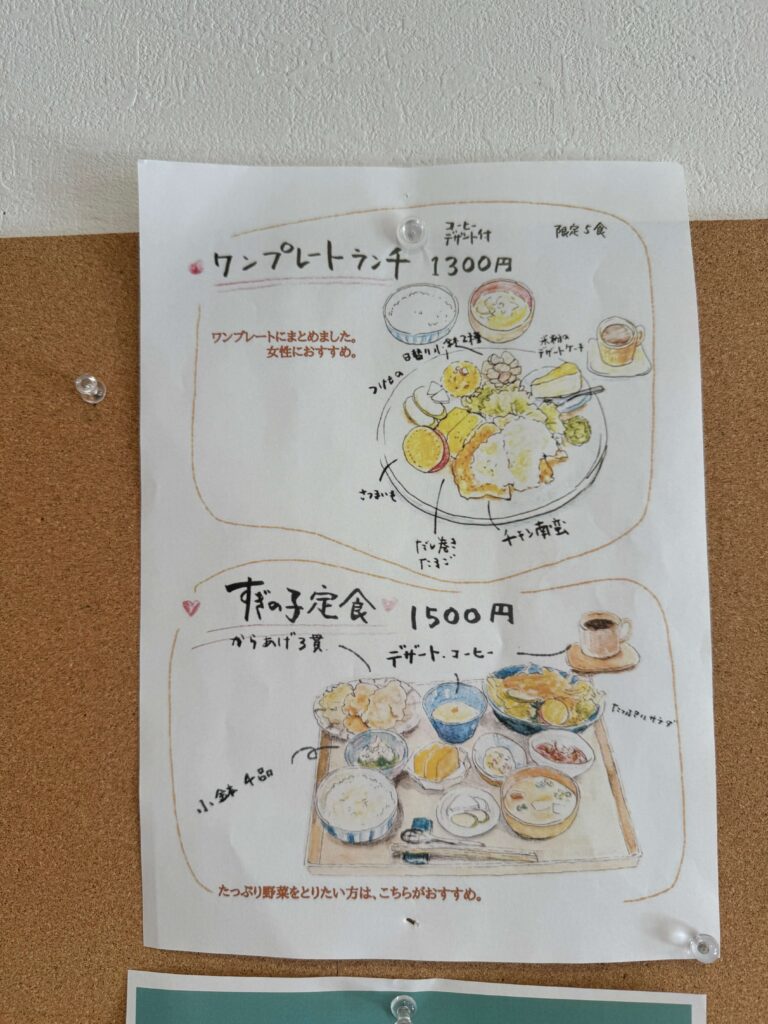 コーヒー
デザート付
限定5食
ワンプレートランチ 1300円
ワンプレートにまとめました。
女性におすすめ。
日替り小鉢2種
米粉の
デザートケーキ
つけもの
さつまいも
だし巻き
たまご
チキン南蛮
すぎの子定食 1500円
からあげ3貫
デザート・コーヒー
たっぷりサラダ
小鉢4品
たっぷり野菜をとりたい方は、こちらがおすすめ。